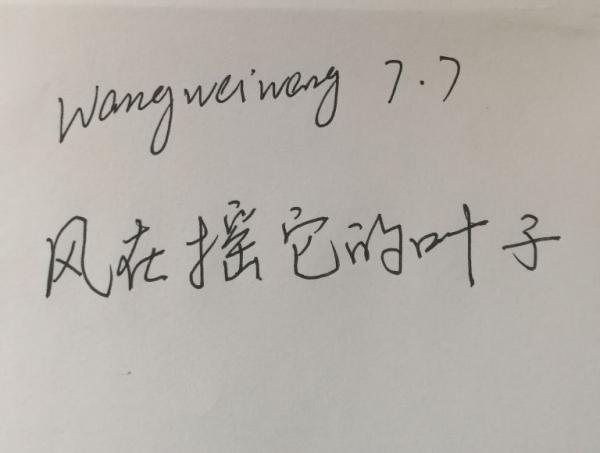 Wangweiwang 7.7
风在摇它的叶子